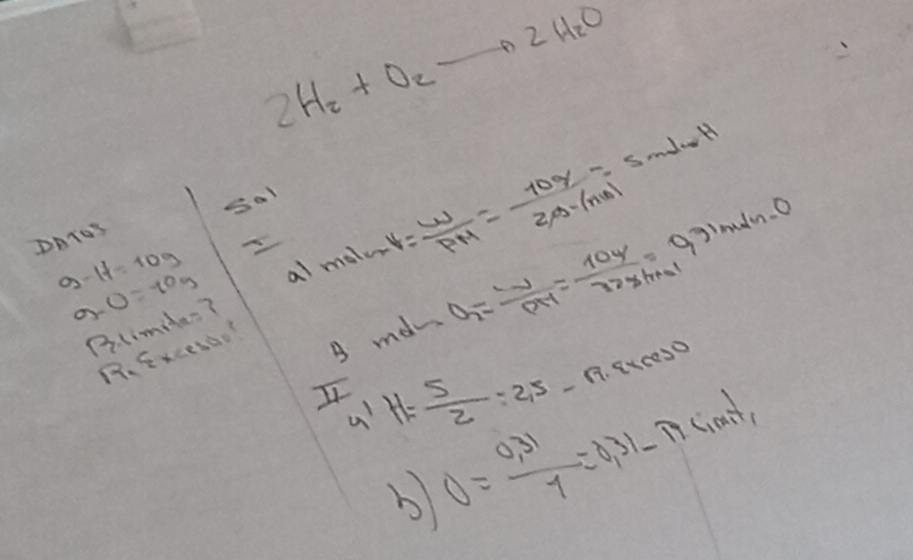 2H₂ + O₂ → 2 H₂O
DATOS
g-H = 10g
g-O = 10g
R. Limite = ?
R. Exceso = ?
Sol
I
a) moles H = W/PM = 10g/2g/mol = 5 moles H
b) moles O₂ = W/PM = 10g/32g/mol = 0,31 moles O
II
a) H = 5/2 = 2,5 - R. Exceso
b) O = 0,31/1 = 0,31 - R Limit,